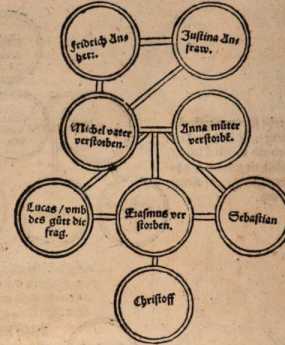 Fridrich Ans
herr.
Justina Ans
fraw.
Michel vater
verstorben.
Anna můter
verstorbẽ.
Lucas / vmb
des gůtt die
frag.
Erasmus ver
storben.
Sebastian
Christoff